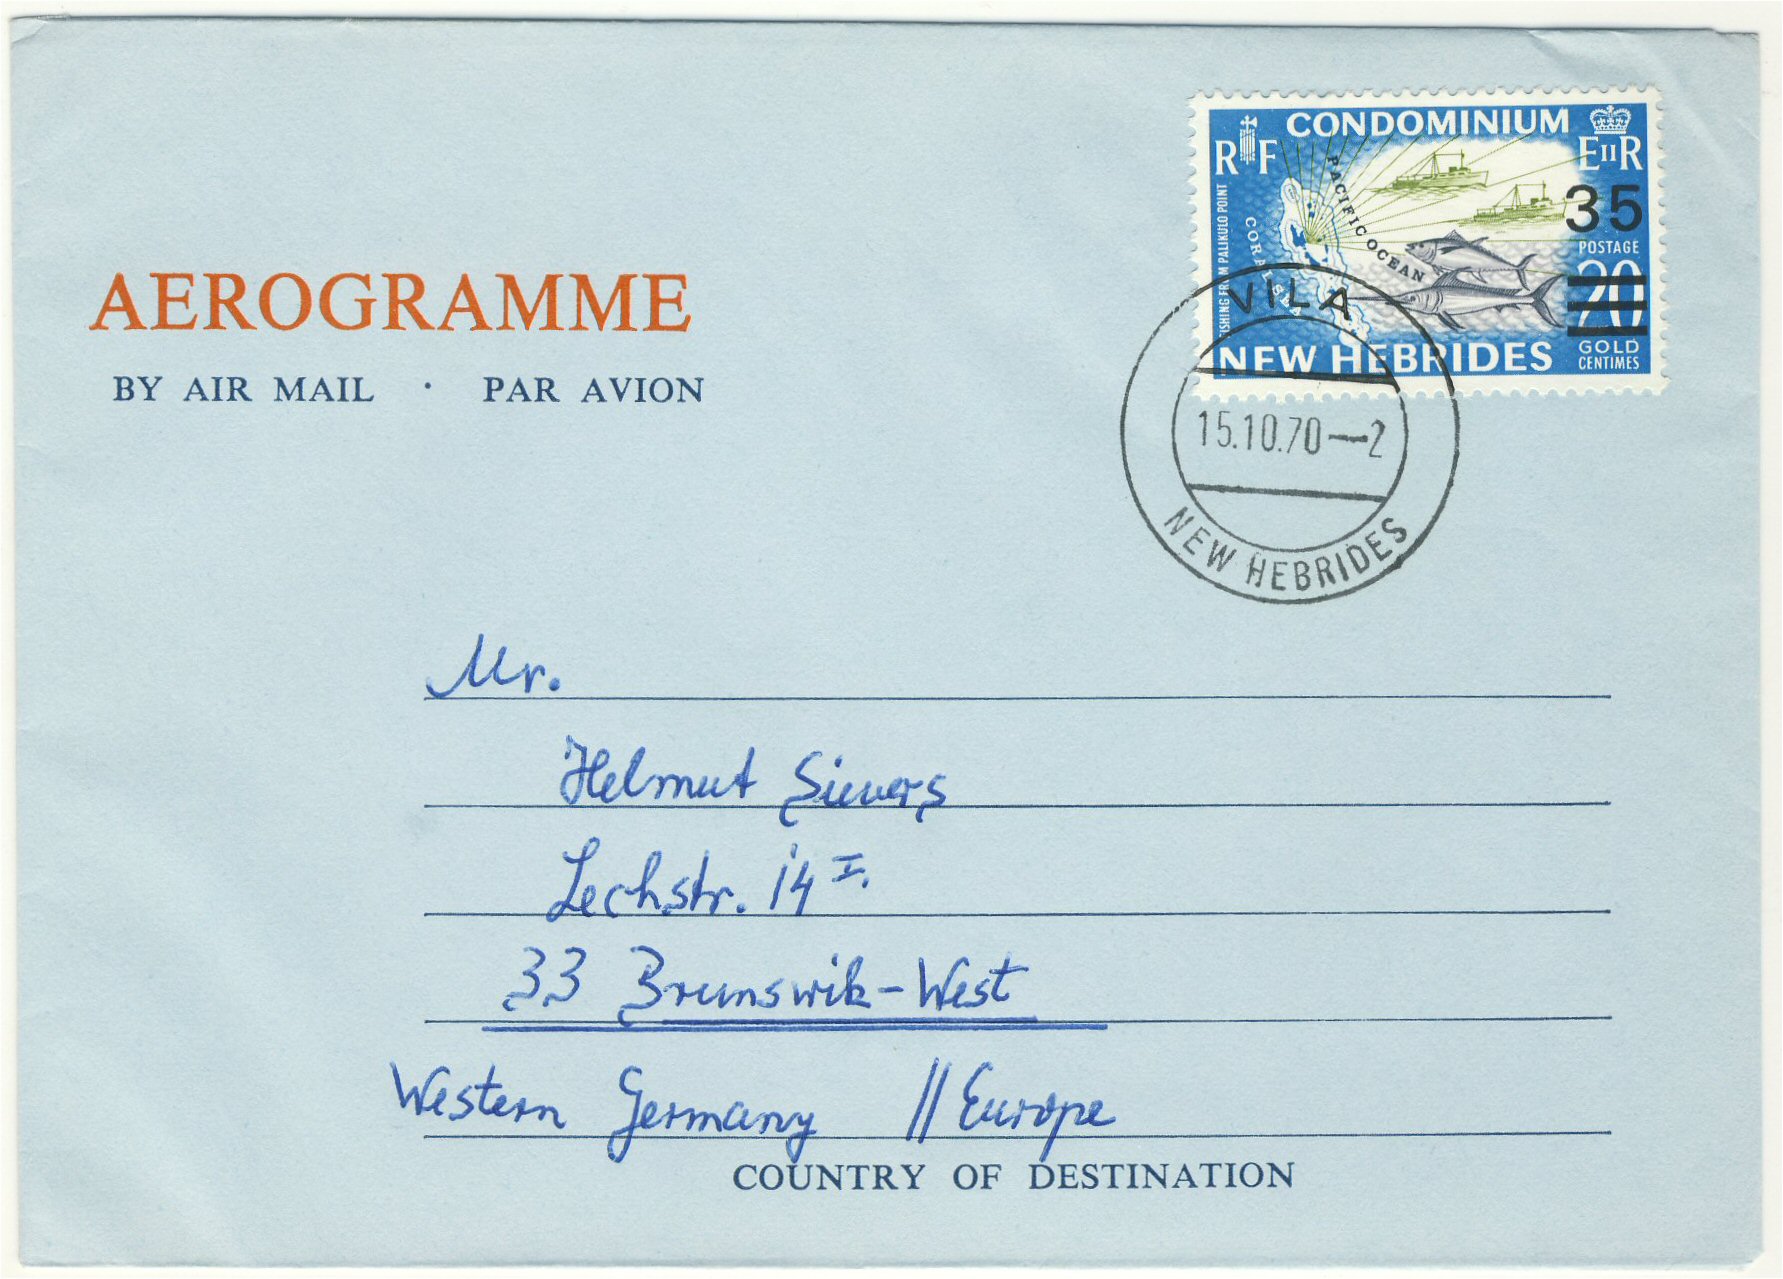 CONDOMINIUM
R F
E II R
PACIFIC OCEAN
CORAL SEA
FISHING FROM PALIKULO POINT
35
POSTAGE
20
GOLD
CENTIMES
NEW HEBRIDES
AEROGRAMME
BY AIR MAIL · PAR AVION
VILA
15.10.70—2
NEW HEBRIDES
Mr.
Helmut Sievers
Lechstr. 14 I.
33 Brunswik-West
Western Germany // Europe
COUNTRY OF DESTINATION